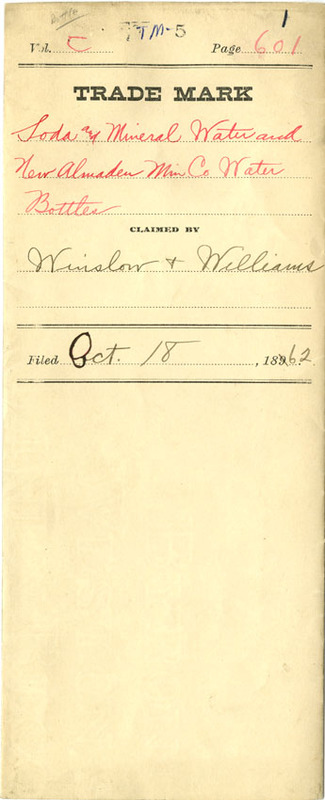 Bottle
1
TM-5
Vol. C Page 601
TRADE MARK
Soda & Mineral Water and
New Almaden Min Co Water
Bottles
CLAIMED BY
Winslow & Williams
Filed Oct. 18, 1862.